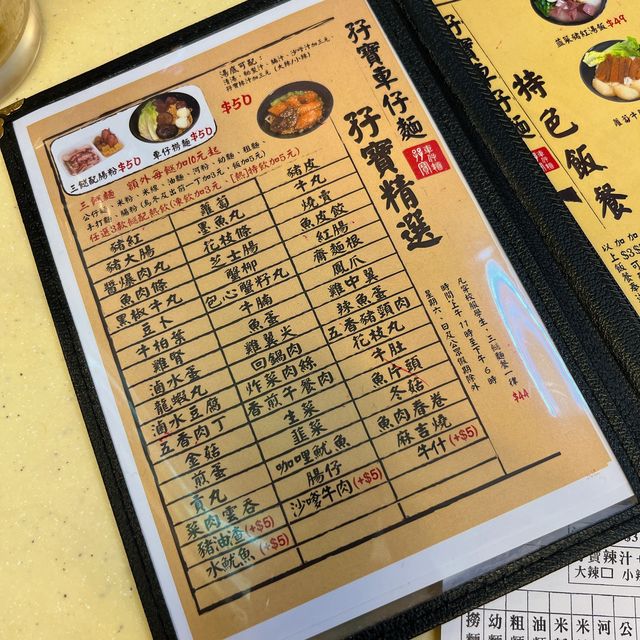 孖寶車仔麵
孖寶精選
湯底可配：
清湯、麻辣汁、腩汁、沙嗲汁加三元
孖寶辣汁加三元 (大辣/小辣)
$50
三餸配腸粉 $50
車仔撈麵 $50
三餸麵 額外每餸加10元起
公仔麵、米粉、米線、油麵、河粉、幼麵、粗麵、
手打麵、腸粉
任選3款餸配熱飲(凍飲加3元、[熱]特飲加5元)
豬紅
豬大腸
爆醬肉丸
魚肉條
黑椒牛丸
豆卜
牛柏葉
雞腎
滷水蛋
龍蝦丸
滷水豆腐
五香肉丁
金菇
煎蛋
貢丸
菜肉雲吞
豬油渣(+$5)
水魷魚(+$5)
蘿蔔
黑魚丸
花枝條
芝士腸
蟹柳
包心蟹籽丸
牛腩
魚蛋
雞翼米
回鍋肉
炸菜肉絲
香煎午餐肉
生菜
韮菜
咖哩魷魚
腸仔
沙嗲牛肉(+$5)
豬皮
牛丸
燒賣
魚皮餃
紅腸
齋麵根
鳳爪
雞中翼
辣魚蛋
五香豬頭肉
花枝丸
牛肚
魚片頭
冬菇
魚肉春卷
麻吉燒
牛什(+$5)
凡穿校服學生，三餸麵餐一律 $44
時間上午11時至下午6時
星期六、日及公眾假期除外
孖寶車仔麵
特色飯餐
韮菜豬紅湯飯 $49
大辣□ 小辣
撈麵
幼麵
粗麵
油麵
米
米
河
公